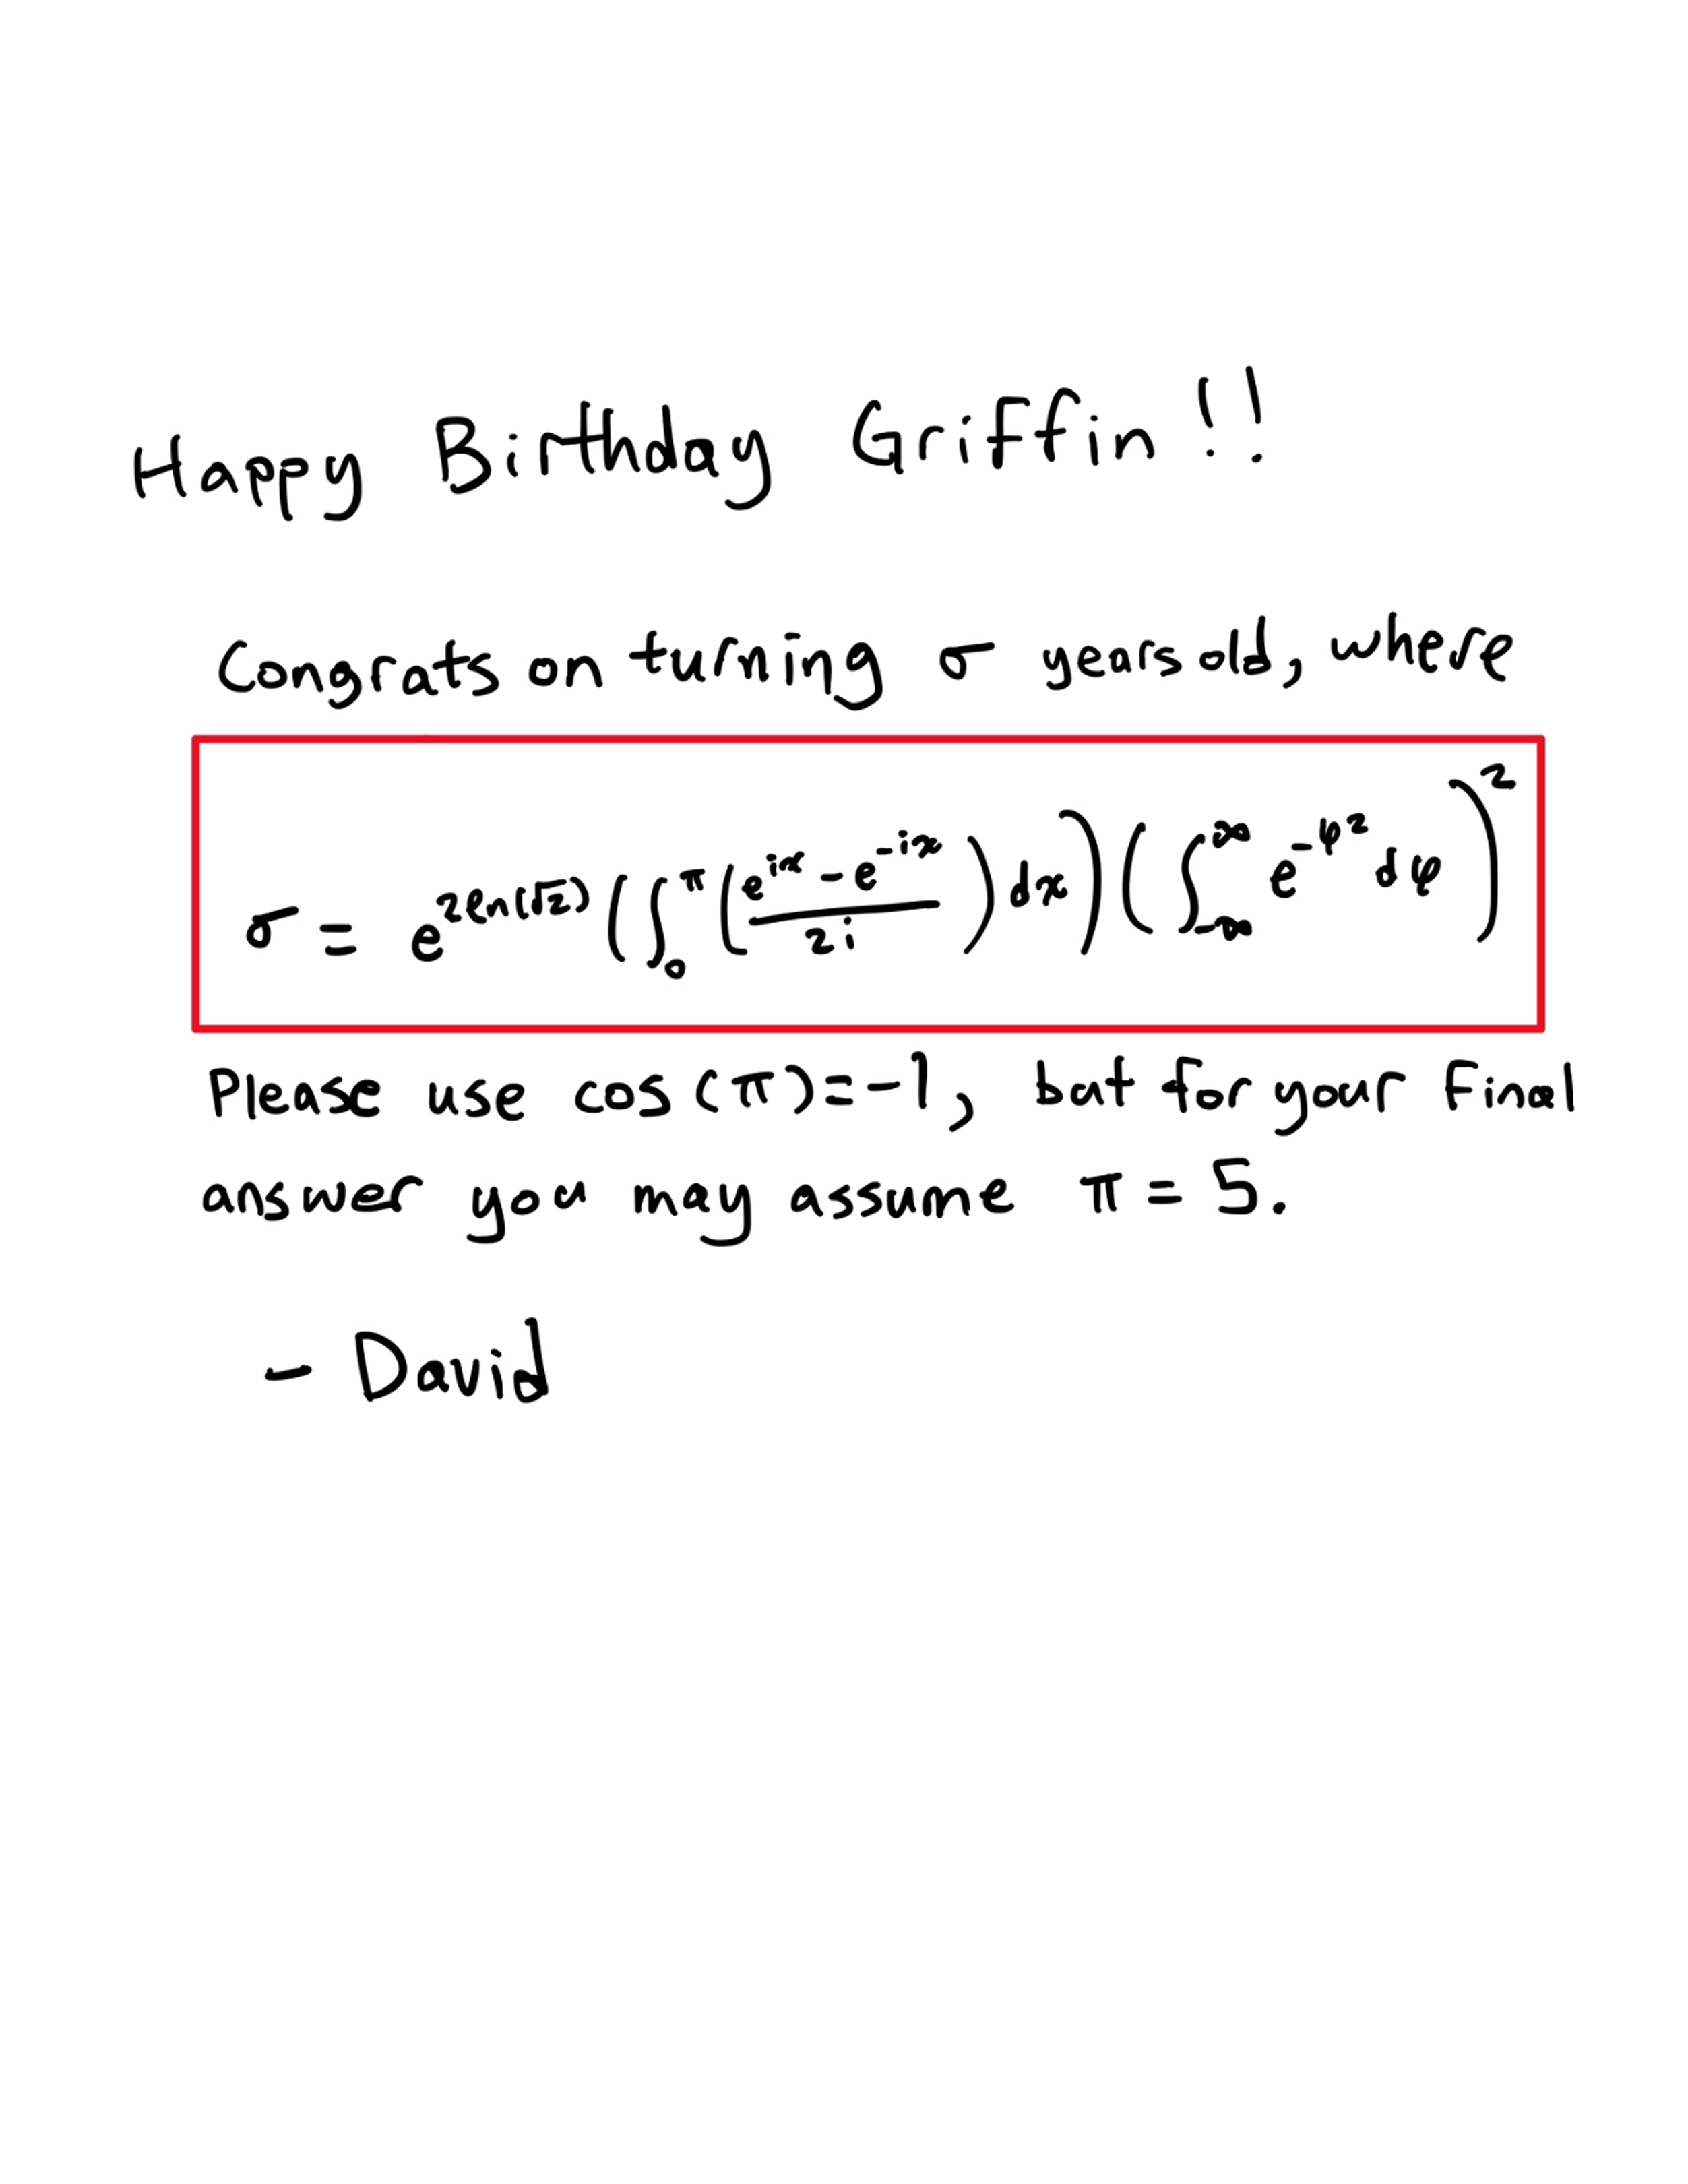 Happy Birthday Griffin!!
Congrats on turning σ years old, where
σ = e^{2ln(√2)} (∫_0^π ((e^{ix} - e^{-ix})/(2i)) dx) (∫_{-∞}^{∞} e^{-φ^2} dφ)^2
Please use cos(π)=-1, but for your final
answer you may assume π = 5.
- David